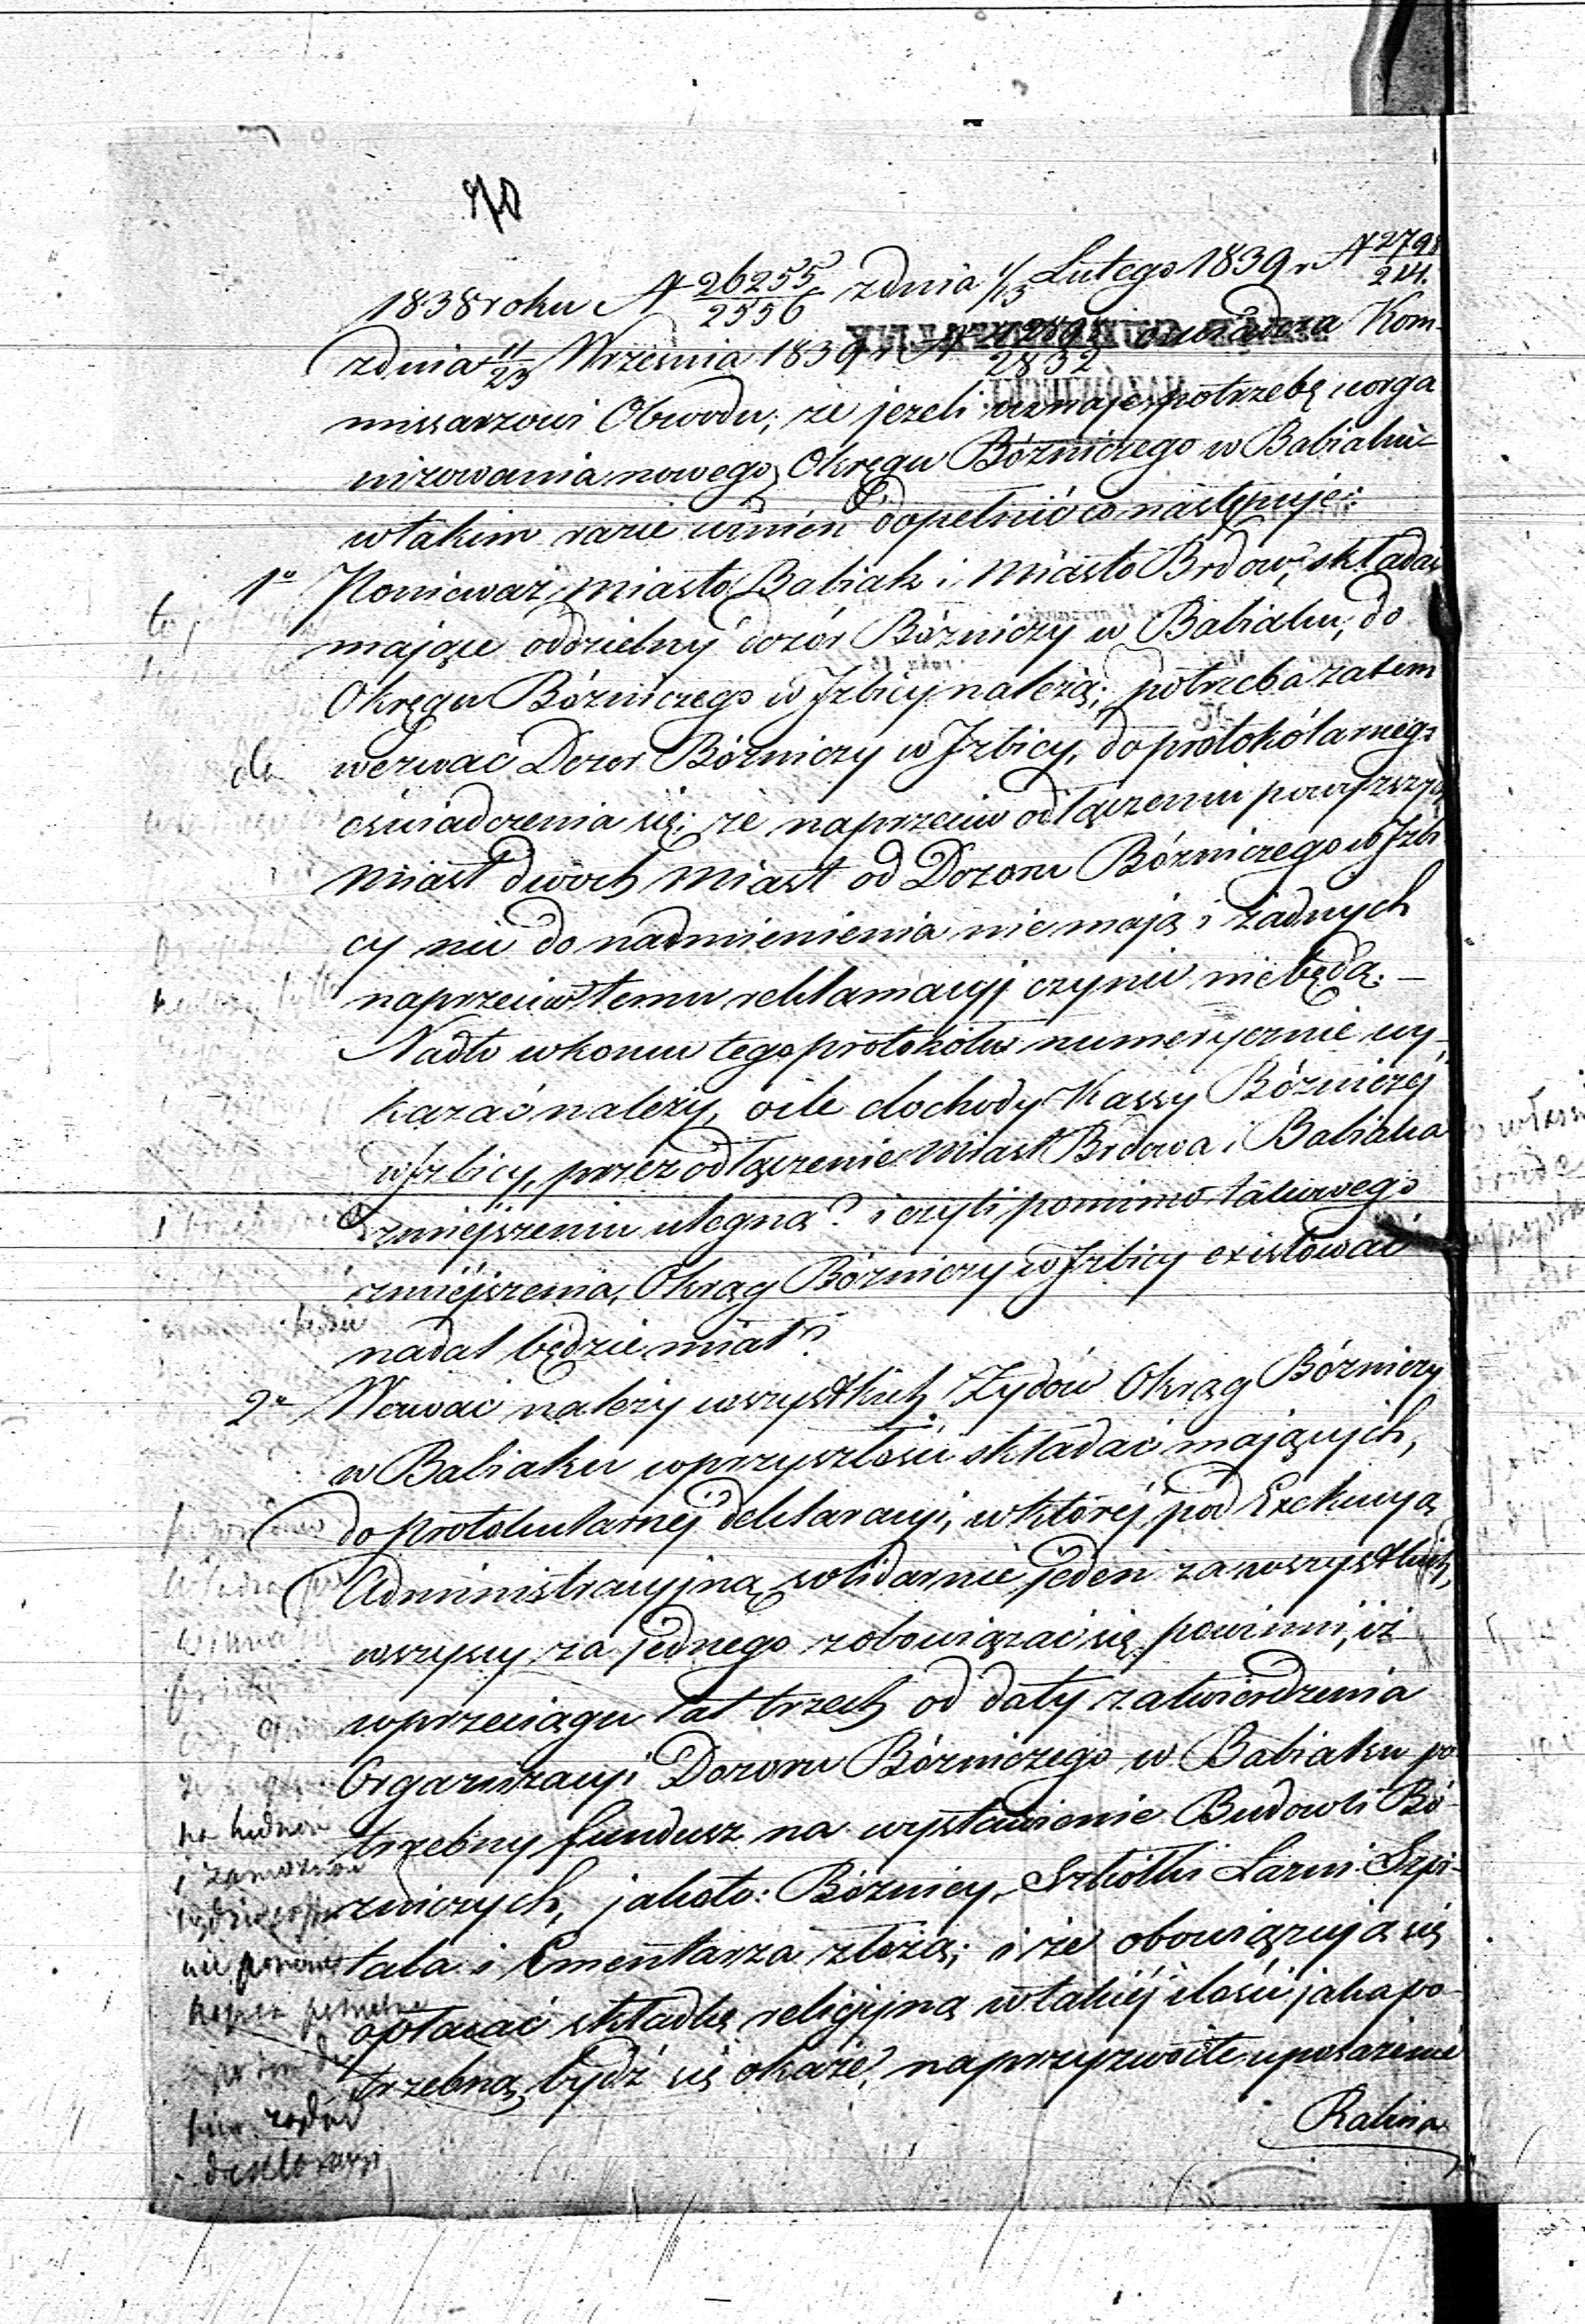 1838 roku N 26255/2556 z dnia 1/13 Lutego 1839 r N 2798/214.
z dnia 11/23 Września 1839 r N oświadcza Kom-
missarzowi Obwodu, że jeżeli uznaje potrzebę uorga
nizowania nowego Okręgu Bóżniczego w Babiaku
w takim razie winien dopełnić co następuje:
1o Ponieważ miasto Babiak i Miasto Brdów, składać
mające oddzielny dozór Bóżniczy w Babiaku, do
Okręgu Bóżniczego w Izbicy należą; potrzeba zatem
wezwać Dozór Bóżniczy w Izbicy, do protokólarnego
oświadczenia się; że naprzeciw odłączeniu powyższych
Miast dwóch Miast od Dozoru Bóżniczego w Izbi
cy nic do nadmienienia nie mają i żadnych
naprzeciw temu reklamacyi czynić nie będą. —
Nadto w końcu tego protokółu numerycznie wy-
kazać należy, o ile dochody Kassy Bóżniczej
w Izbicy, przez odłączenie Miast Brdowa i Babiaka
zmniejszeniu ulegną? i czyli pomimo takowego
zmniejszenia, Okrąg Bóżniczy w Izbicy existować
nadal będzie miał?
2o Wezwać należy wszystkich Żydów Okrąg Bóżniczy
w Babiaku w przyszłości składać mających,
do protokularnej deklaracyi, w której pod Exekucyą
Administracyjną solidarnie jeden za wszystkich,
wszyscy za jednego zobowiązać się powinni, iż
w przeciągu lat trzech od daty zatwierdzenia
Organizacyi Dozoru Bóżniczego w Babiaku po
trzebny fundusz na wystawienie Budowli Bó-
żniczych, jakoto: Bóżnicy, Szkółki Łazni Szpi-
tala i Cmentarza złożą; i że obowiązują się
opłacać składkę religijną w takiej ilości jaka po-
trzebną bydź się okaże, na przyzwoite uposażenie
Rabina